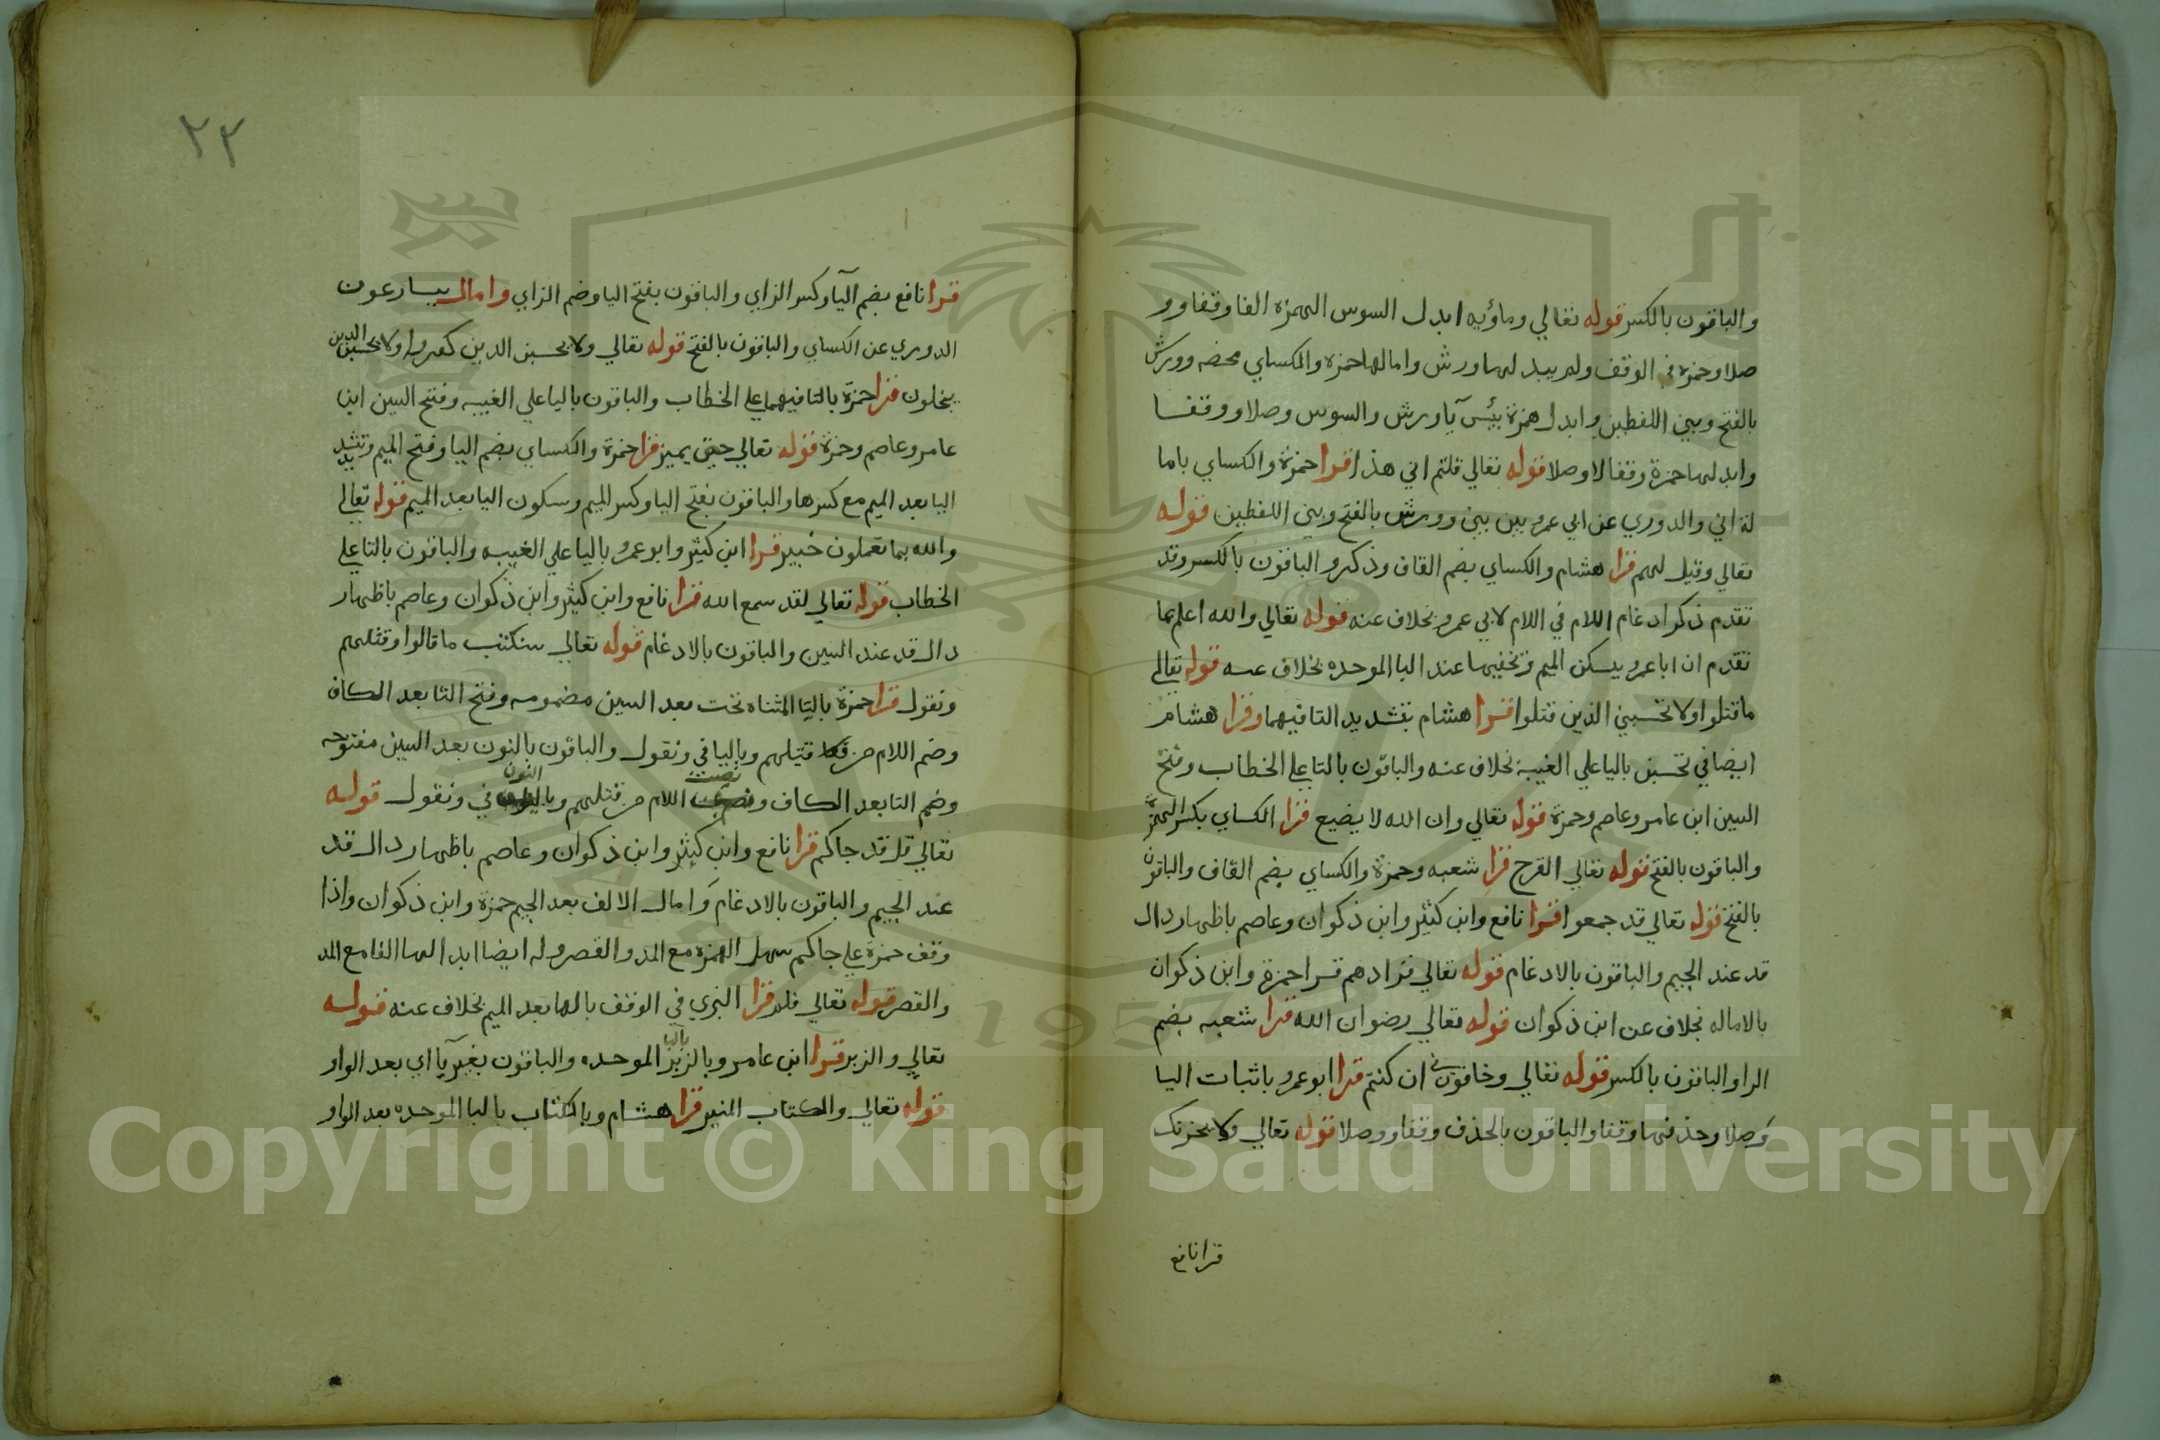 والباقون بالكسر قوله تعالي وماؤيه ابدل السوس الهمزة الفا وقفا وو
صلا وحمزة في الوقف ولم يبدلها ورش وامالها حمزة والكساي محضه وورش
بالفتح وبين اللفظين وابدل همزة بيس يآ ورش والسوس وصلا ووقفا
وابدلها حمزة وقفا لا وصلا قوله تعالي قلتم اني هذا قرا حمزة والكساي باما
لة اني والدوري عن ابي عمرو بين بين وورش بالفتح وبين اللفظين قوله
تعالي وقيل لهم قرا هشام والكساي بضم القاف وذكر والباقون بالكسر وقد
تقدم ذكر ادغام اللام في اللام لابي عمرو بخلاف عنه قوله تعالي والله اعلم بما
تقدم ان ابا عمرو يسكن الميم وتخفيها عند البا الموحده بخلاف عنه قوله تعالي
ما قتلوا ولا تحسبن الذين قتلوا قرا هشام بتشديد التا فيهما وقرا هشام
ايضا في تحسبن باليا علي الغيبة بخلاف عنه والباقون بالتا علي الخطاب وفتح
السين ابن عامر وعاصم وحمزة قوله تعالي وان الله لا يضيع قرا الكساي بكسر الهمزة
والباقون بالفتح قوله تعالي القرح قرا شعبه وحمزة والكساي بضم القاف والباقون
بالفتح قوله تعالي قد جمعوا قرا نافع وابن كثير وابن ذكوان وعاصم باظهار دال
قد عند الجيم والباقون بالادغام قوله تعالي فزادهم قرا حمزة وابن ذكوان
بالاماله بخلاف عن ابن ذكوان قوله تعالي رضوان الله قرا شعبه بضم
الرا والباقون بالكسر قوله تعالي وخافون ان كنتم قرا ابو عمرو باثبات اليا
وصلا وحذفها وقفا والباقون بالحذف وقفا ووصلا قوله تعالي ولا يحزنك
قرا نافع
٢٢
قرا نافع بضم اليآ وكسر الزاي والباقون بفتح اليا وضم الزاي وامال يسارعون
الدوري عن الكساي والباقون بالفتح قوله تعالي ولا يحسبن الذين كفروا ولا يحسبن الذين
يبخلون قرا حمزة بالتا فيهما علي الخطاب والباقون باليا علي الغيبه وفتح السين ابن
عامر وعاصم وحمزة قوله تعالي حتي يميز قرا حمزة والكساي بضم اليا وفتح الميم وتشديد
اليا بعد الميم مع كسرها والباقون بفتح اليا وكسر الميم وسكون اليا بعد الميم قوله تعالي
والله بما تعملون خبير قرا ابن كثير وابو عمرو باليا علي الغيبه والباقون بالتا علي
الخطاب قوله تعالي لقد سمع الله قرا نافع وابن كثير وابن ذكوان وعاصم باظهار
دال قد عند السين والباقون بالادغام قوله تعالي سنكتب ما قالوا وقتلهم
ونقول قرا حمزة باليا المثناه تحت بعد السين مضمومه وفتح التا بعد الكاف
وضم اللام من قتلهم وباليا في ونقول والباقون بالنون بعد السين مفتوحه
وضم التا بعد الكاف ونصب اللام من قتلهم وبالنون في ونقول قوله
تعالي قل قد جاكم قرا نافع وابن كثير وابن ذكوان وعاصم باظهار دال قد
عند الجيم والباقون بالادغام وامال الالف بعد الجيم حمزة وابن ذكوان واذا
وقف حمزة علي جاكم سهل الهمزه مع المد والقصر وله ايضا ابدالها الفا مع المد
والقصر قوله تعالي فلم قرا البزي في الوقف بالها بعد الميم بخلاف عنه قوله
تعالي والزبر قرا ابن عامر وبالزبر بالبا الموحده والباقون بغير بآ اي بعد الواو
قوله تعالي والكتاب المنير قرا هشام وبالكتاب بالبا الموحده بعد الواو
Copyright © King Saud University
1957